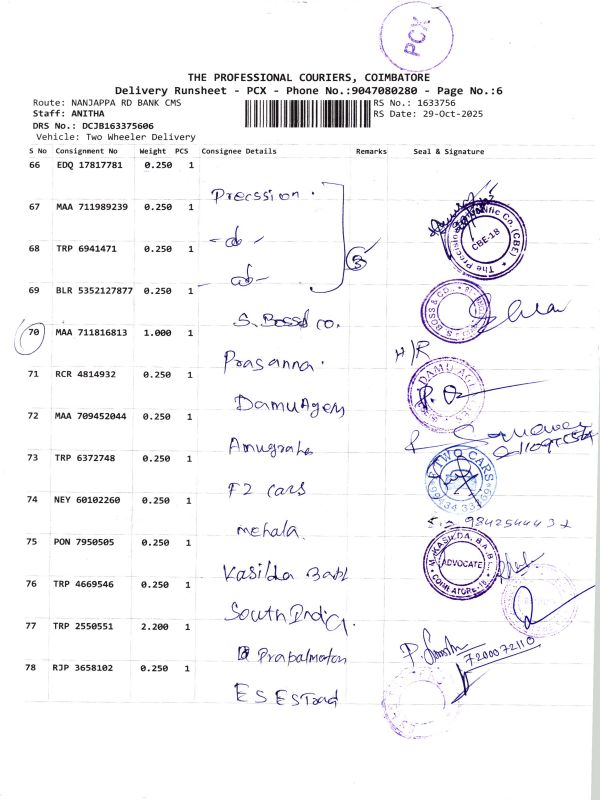 PCX
THE PROFESSIONAL COURIERS, COIMBATORE
Delivery Runsheet - PCX - Phone No.:9047080280 - Page No.:6
Route: NANJAPPA RD BANK CMS
RS No.: 1633756
Staff: ANITHA
RS Date: 29-Oct-2025
DRS No.: DCJB163375606
Vehicle: Two Wheeler Delivery
S No Consignment No Weight PCS Consignee Details Remarks Seal & Signature
66 EDQ 17817781 0.250 1
Precssion.
67 MAA 711989239 0.250 1
- do -
CBE-18
68 TRP 6941471 0.250 1
3
- do -
69 BLR 5352127877 0.250 1
S. Boss & co.
70 MAA 711816813 1.000 1
Prasanna.
H/R
71 RCR 4814932 0.250 1
DAMU AG
Damu Agen
72 MAA 709452044 0.250 1
73 TRP 6372748 0.250 1
F2 cars
F TWO CARS
74 NEY 60102260 0.250 1
mehala.
9842544432
75 PON 7950505 0.250 1
M. KASILDA, B.A., B.L.
ADVOCATE
COIMBATORE-18
Kasilda
76 TRP 4669546 0.250 1
South Indi
77 TRP 2550551 2.200 1
7200072110
78 RJP 3658102 0.250 1